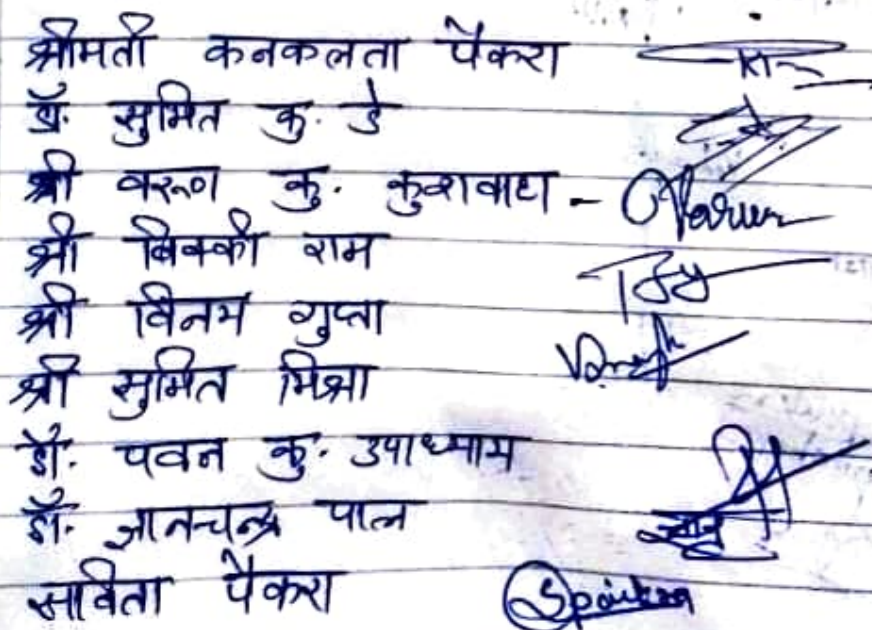 श्रीमती कनकलता पैकरा
डॉ. सुमित कु. डे
श्री वरूण कु. कुशवाहा - Varun
श्री विक्की राम
श्री विनय गुप्ता
श्री सुमित मिश्रा
डॉ. पवन कु. उपाध्याय
डॉ. ज्ञानचन्द्र पाल
सविता पैकरा Spaikra